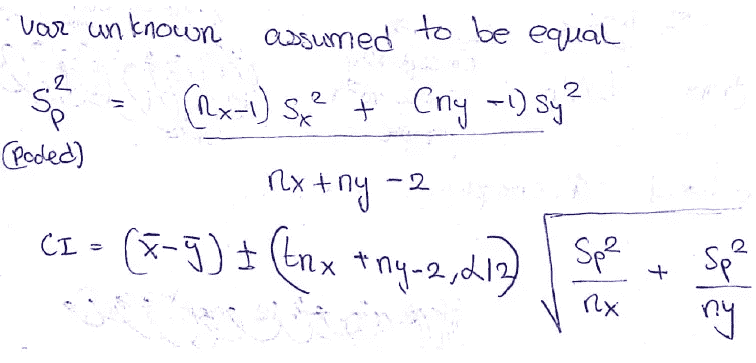 var unknown assumed to be equal
Sp² = (nx-1) Sx² + (ny -1) Sy²
(Pooled)
nx + ny - 2
CI = (x̄-ȳ) ± (tnx + ny-2, α/2) √ Sp²/nx + Sp²/ny